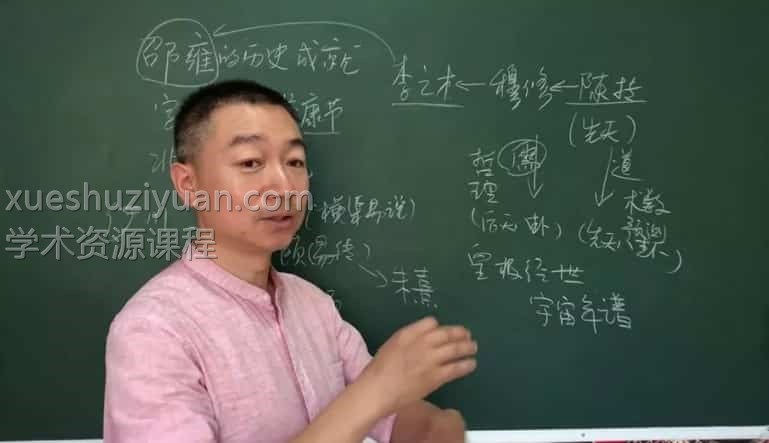 邵雍的历史成就
李之才←穆修←陈抟
(先天)
康节
哲理
儒
道
术数
(后天卦)
(先天
横渠易说)
颐(易传)
皇极经世
朱熹
宇宙年谱
xueshuziyuan.com
学术资源课程